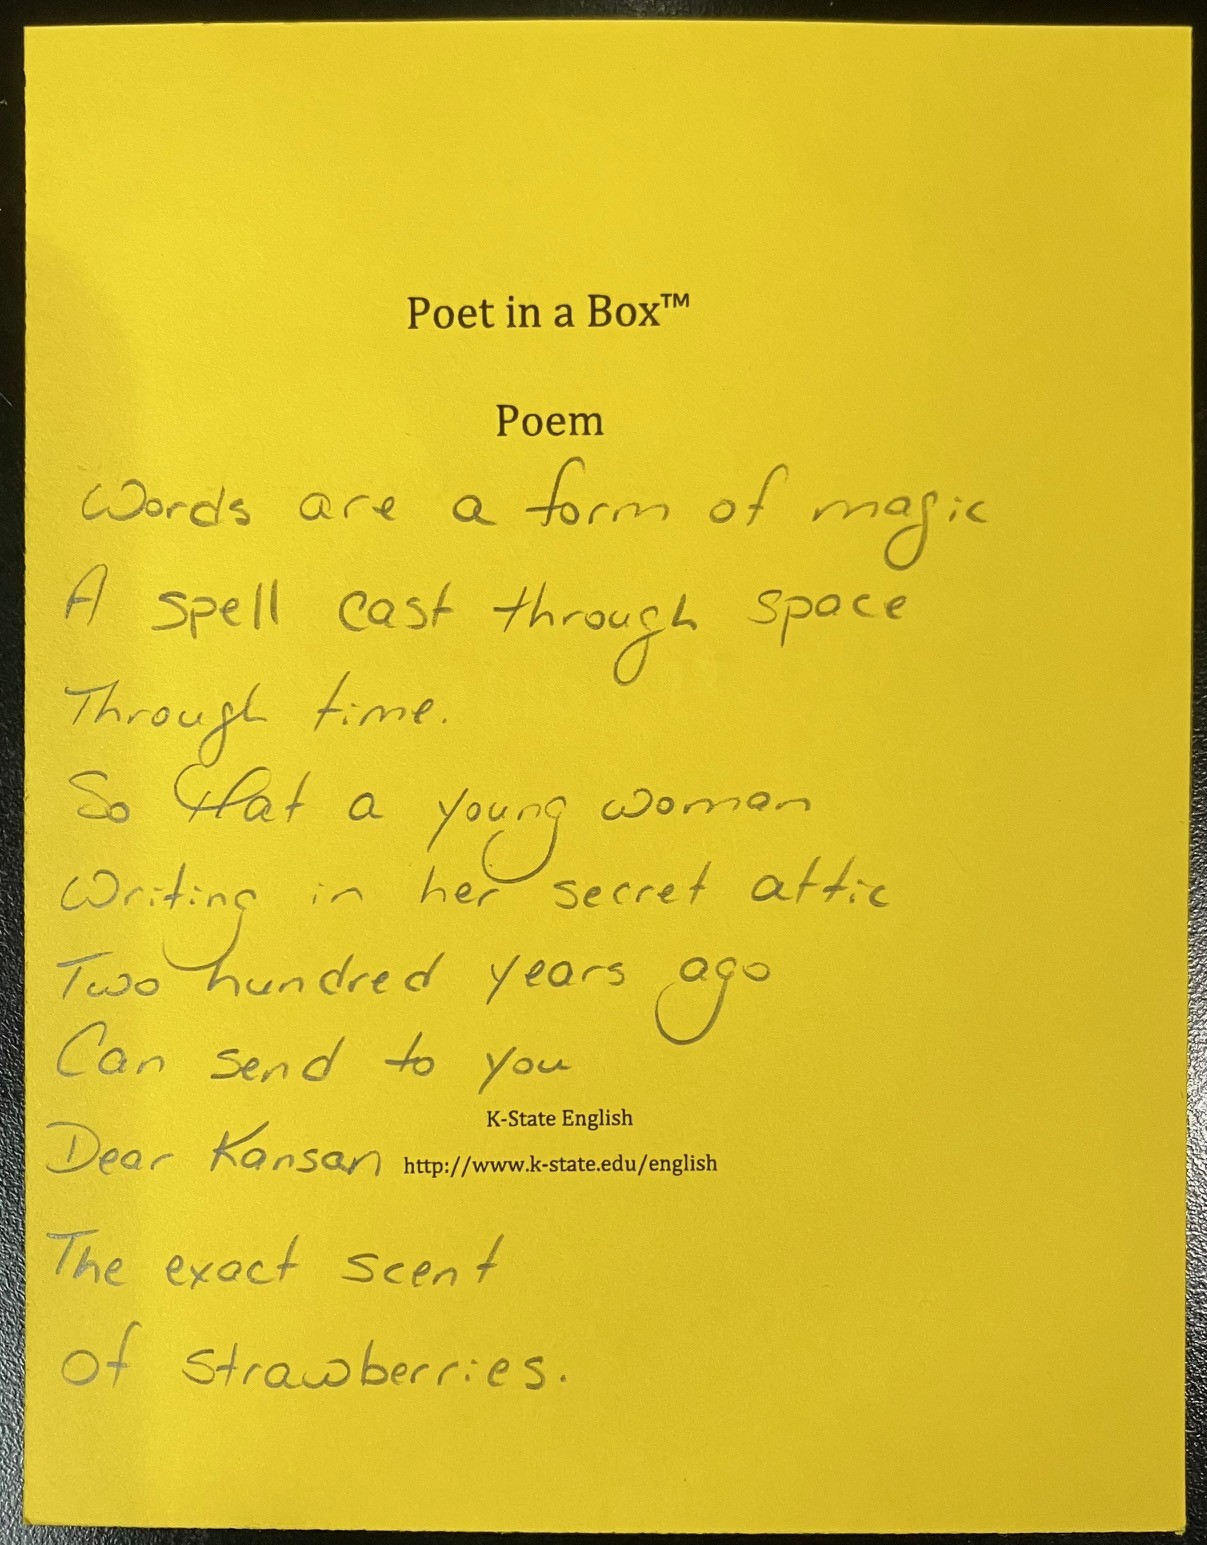 Poet in a Box™
Poem
Words are a form of magic
A spell cast through space
Through time.
So that a young woman
Writing in her secret attic
Two hundred years ago
Can send to you
K-State English
Dear Kansan
http://www.k-state.edu/english
The exact scent
of strawberries.